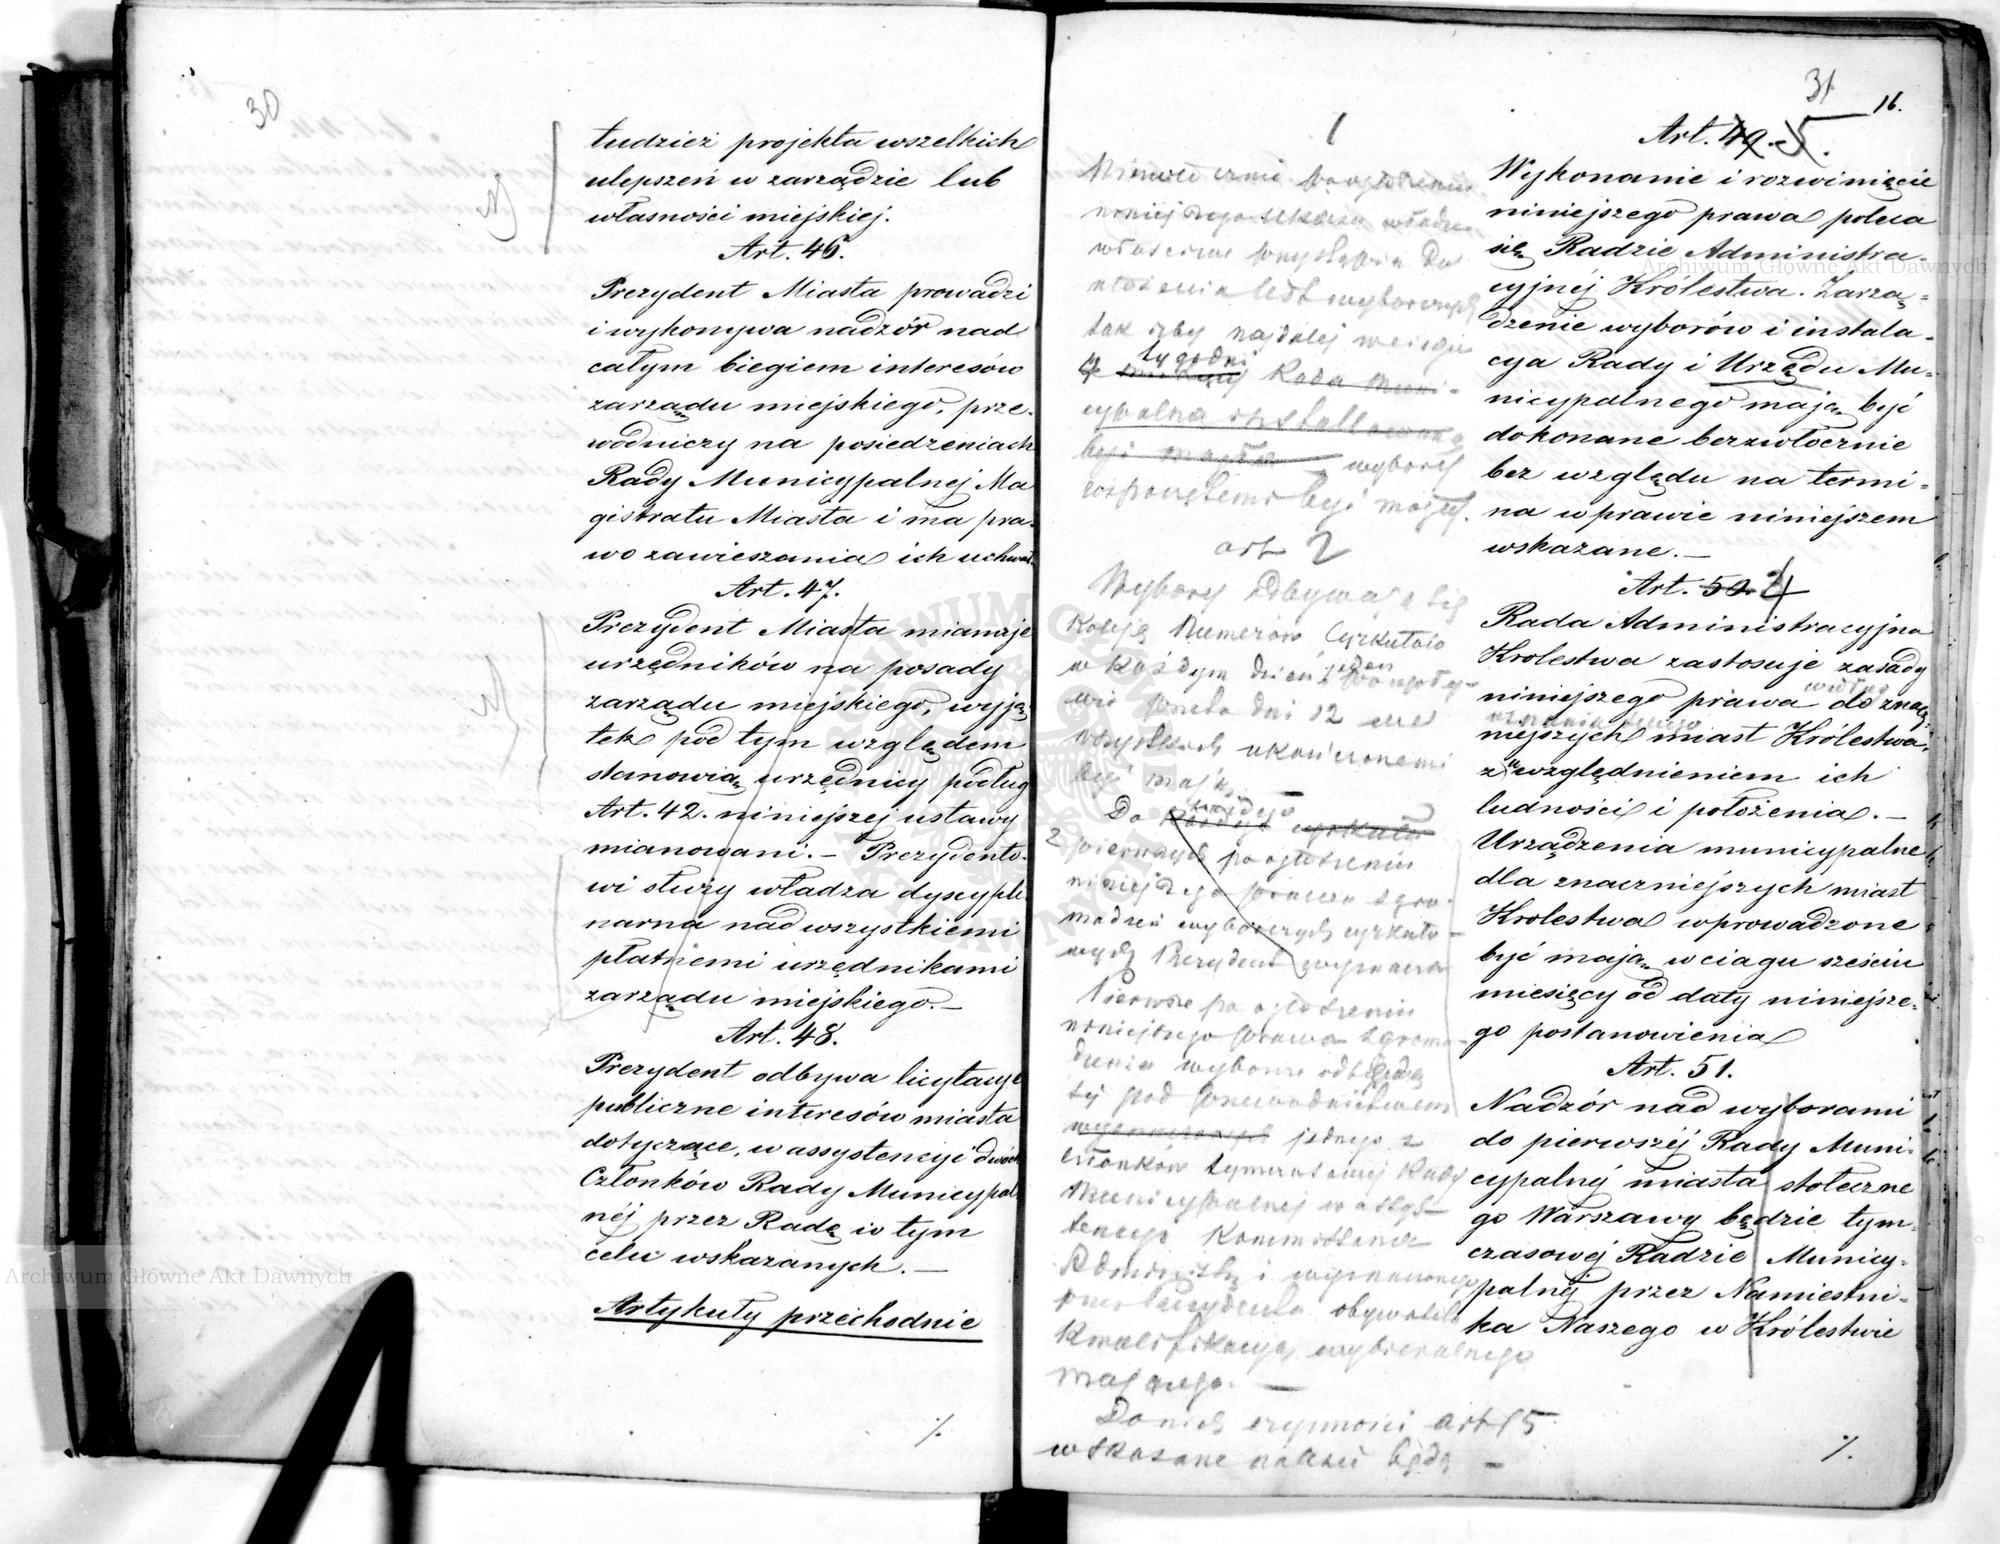 30
tudzież projekta wszelkich
ulepszeń w zarządzie lub
własności miejskiej.
Art. 46.
Prezydent Miasta prowadzi
i wykonywa nadzór nad
całym biegiem interesów
zarządu miejskiego, prze-
wodniczy na posiedzeniach
Rady Municypalnej Ma
gistratu Miasta i ma pra-
wo zawieszania ich uchwał.
Art. 47.
Prezydent Miasta mianuje
urzędników na posady
zarządu miejskiego, wyją
tek pod tym względem
stanowią urzędnicy podług
Art. 42. niniejszej ustawy
mianowani. – Prezydento-
wi służy władza dyscypli-
narna nad wszystkiemi
płatnemi urzędnikami
zarządu miejskiego. –
Art. 48.
Prezydent odbywa licytacye
publiczne interesów miasta
dotyczące, w assystencyi dwóch
Członków Rady Municypal
néj przez Radę w tym
celu wskazanych. —
Artykuły przechodnie
./.
31
16.
1
Niezwłocznie po ogłoszeniu
niniejszego ukazu władze
właściwe przystąpią do
ułożenia list wyborczych
tak iżby najdalej w ciągu
tygodni
Rada Muni-
cypalna installowaną
być mogła wybory
rozpoczętemi być mogły.
art 2
Wybory odbywać się
koleją Numerów Cyrkułów
w każdym dzień jeden
dni 12 we
wszystkich ukończonemi
być mają.
Do każdego cyrkułu
2 pierwszych po ogłoszeniu
niniejszego prawa zgro-
madzeń wyborczych cyrkuło-
wych Prezydent wyznacza
Pierwsze po ogłoszeniu
niniejszego prawa zgroma-
dzenia wyborcze odbędą
się pod przewodnictwem
wyznaczonych jednego z
członków tymczasowej Rady
Municypalnej w assys-
tencyi Kommissarza
i wyznaczonego
przez Prezydenta obywatela
kwalifikacyą wybieralnego
mającego. —
Do nich czynności art 15
wskazane należeć będą –
Art. 49. 5.
Wykonanie i rozwinięcie
niniejszego prawa poleca
się Radzie Administra-
cyjnéj Królestwa. Zarzą-
dzenie wyborów i instala-
cya Rady i Urzędu Mu-
nicypalnego mają być
dokonane bezzwłocznie
bez względu na termi-
na w prawie niniejszem
wskazane. —
Art. 50. 4
Rada Administracyjna
Królestwa zastosuje zasady
niniejszego prawa do znacz-
według
uznania swego
niejszych miast Królestwa,
z uwzględnieniem ich
ludności i położenia. –
Urządzenia municypalne
dla znaczniejszych miast
Królestwa wprowadzone
być mają w ciągu sześciu
miesięcy od daty niniejsze-
go postanowienia
Art. 51.
Nadzór nad wyborami
do pierwszéj Rady Muni-
cypalnéj miasta stołeczne
go Warszawy będzie tym-
czasowéj Radzie Municy-
palnéj przez Namiestni-
ka Naszego w Królestwie
./.
Archiwum Główne Akt Dawnych
Archiwum Główne Akt Dawnych